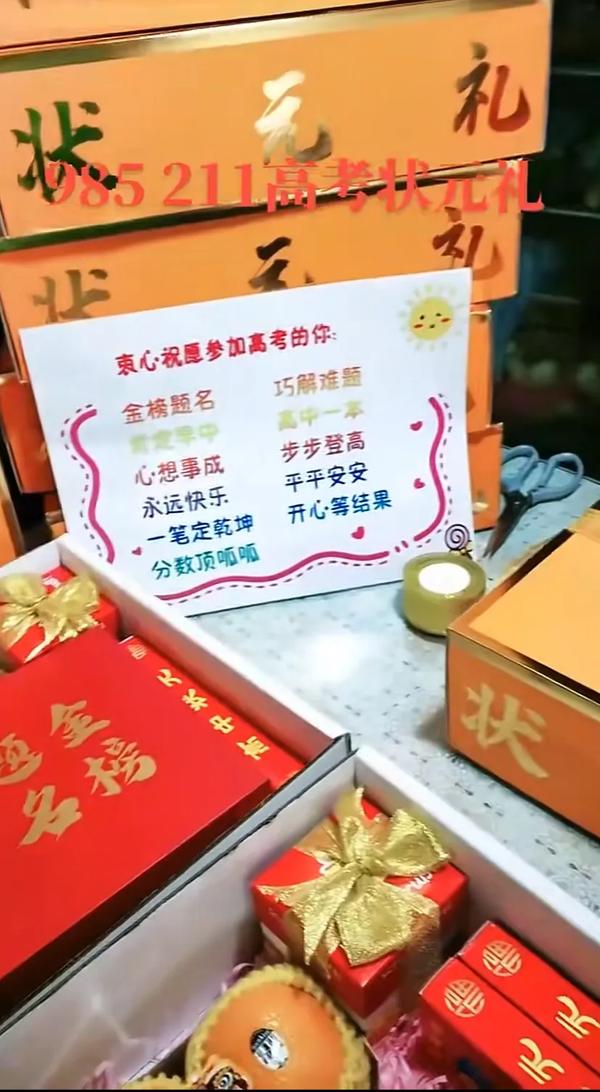 状元礼
985 211高考状元礼
状元礼
衷心祝愿参加高考的你:
金榜题名 巧解难题
肯定早中 高中一本
心想事成 步步登高
永远快乐 平平安安
一笔定乾坤 开心等结果
分数顶呱呱
状
金榜
题名
高中状元
元
元